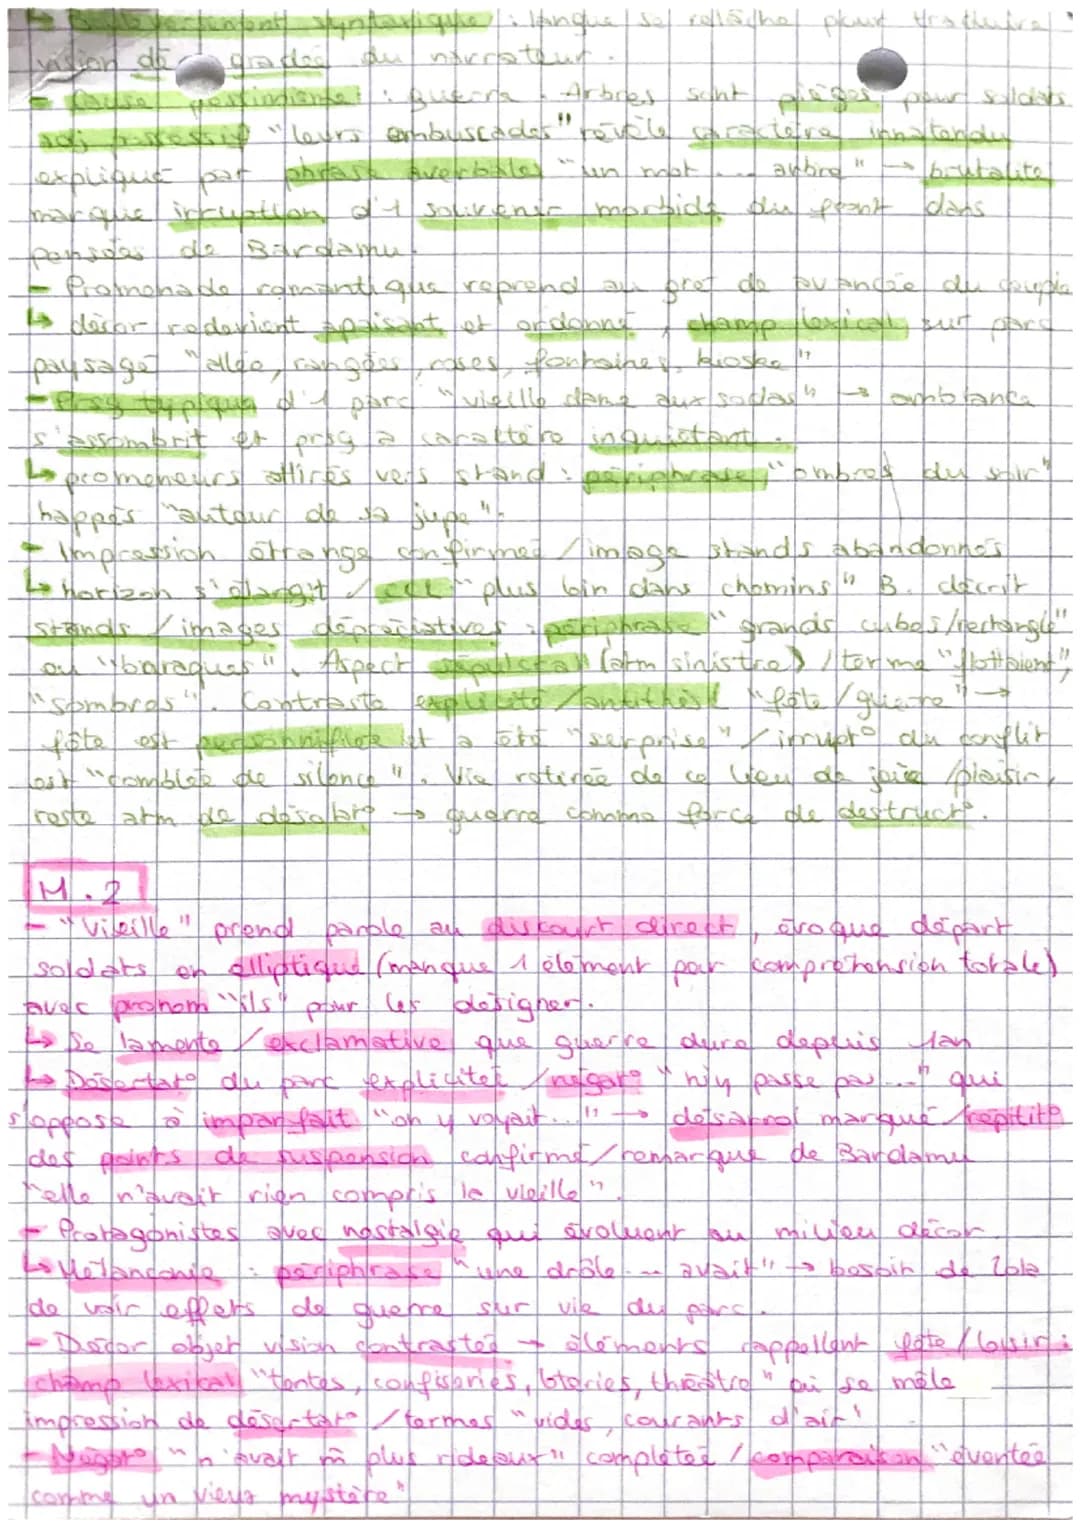 ↳ Bouleversement syntaxique : langue se relâche pour traduire
vision dé gradée du narrateur.
- Cause pessimisme : guerre. Arbres sont piéges pour soldats
adj possessif "leurs embuscades" révèle caractère innatendu
expliqué par phrase averbale "un mot ... arbre" → brutalité
marque irruption d'1 souvenir morbide du front dans
pensées de Bardamu.
- Promenade romantique reprend au gré de avancée du couple
↳ décor redevient apaisant et ordonné, champ lexical sur parc
paysagé "allée, rangées, roses, fontaines, kioske"
- Prsg typique d'1 parc "vieille dame aux sodas" → ambiance
s'assombrit et prsg a caractère inquiétant.
↳ promeneurs attirés vers stand : périphrase "ombres du soir"
happés "autour de sa jupe".
- Impression étrange confirmée / image stands abandonnés
↳ horizon s'élargit / CCL "plus loin dans chemins" B. décrit
stands / images dépréciatives : périphrase "grands cubes/rectangle"
ou "baraques". Aspect sépulcral (atm sinistre) / terme "flottaient",
"sombres". Contraste explicité / antithèse "fête/guerre" →
fête est personnifiée et a été "surprise" / irrupt° du conflit
est "comblée de silence". Vie retirée de ce lieu de joie /plaisir,
reste atm de désolat° → guerre comme force de destruct°.
M.2
- "Vieille" prend parole au discourt direct, évoque départ
soldats en elliptique (manque 1 élément pour compréhension totale)
avec pronom "ils" pour les désigner.
↳ Se lamente / exclamative que guerre dure depuis 1an
↳ Désertat° du parc explicitée / négat° "n'y passe pas..." qui
s'oppose à imparfait "on y voyait..." → désarroi marqué /répitit°
des points de suspension confirmé / remarque de Bardamu
"elle n'avait rien compris la vieille".
- Protagonistes avec nostalgie qui évoluent au milieu décor.
↳ Mélancolie : périphrase "une drôle ... avait" → besoin de Lola
de voir effets de guerre sur vie du parc.
- Décor objet vision contrastée → éléments rappellent fête / loisir :
champ lexical "tentes, confiseries, loteries, théâtre" où se mêle
impression de désertat° / termes "vides, courants d'air"
- Négat° "n'avait m̂ plus rideaux" complétée / comparaison "éventée
comme un vieux mystère"